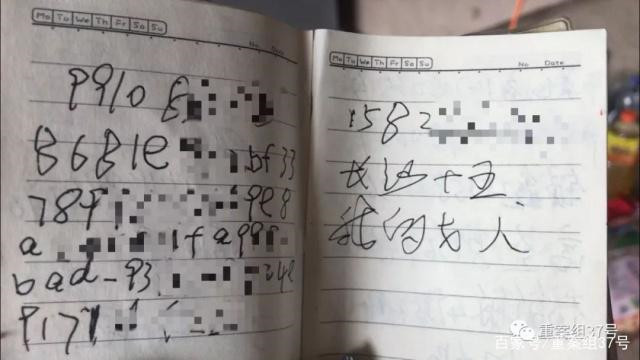 Mo Tu We Th Fr Sa Su
No. Date
P910 8
8681e bf33
784 9e8
a 1fa99
bad-93 24e
P17
Mo Tu We Th Fr Sa Su
No. Date
1582
长沙十五
我的女人
重案组37号
百家号/重案组37号